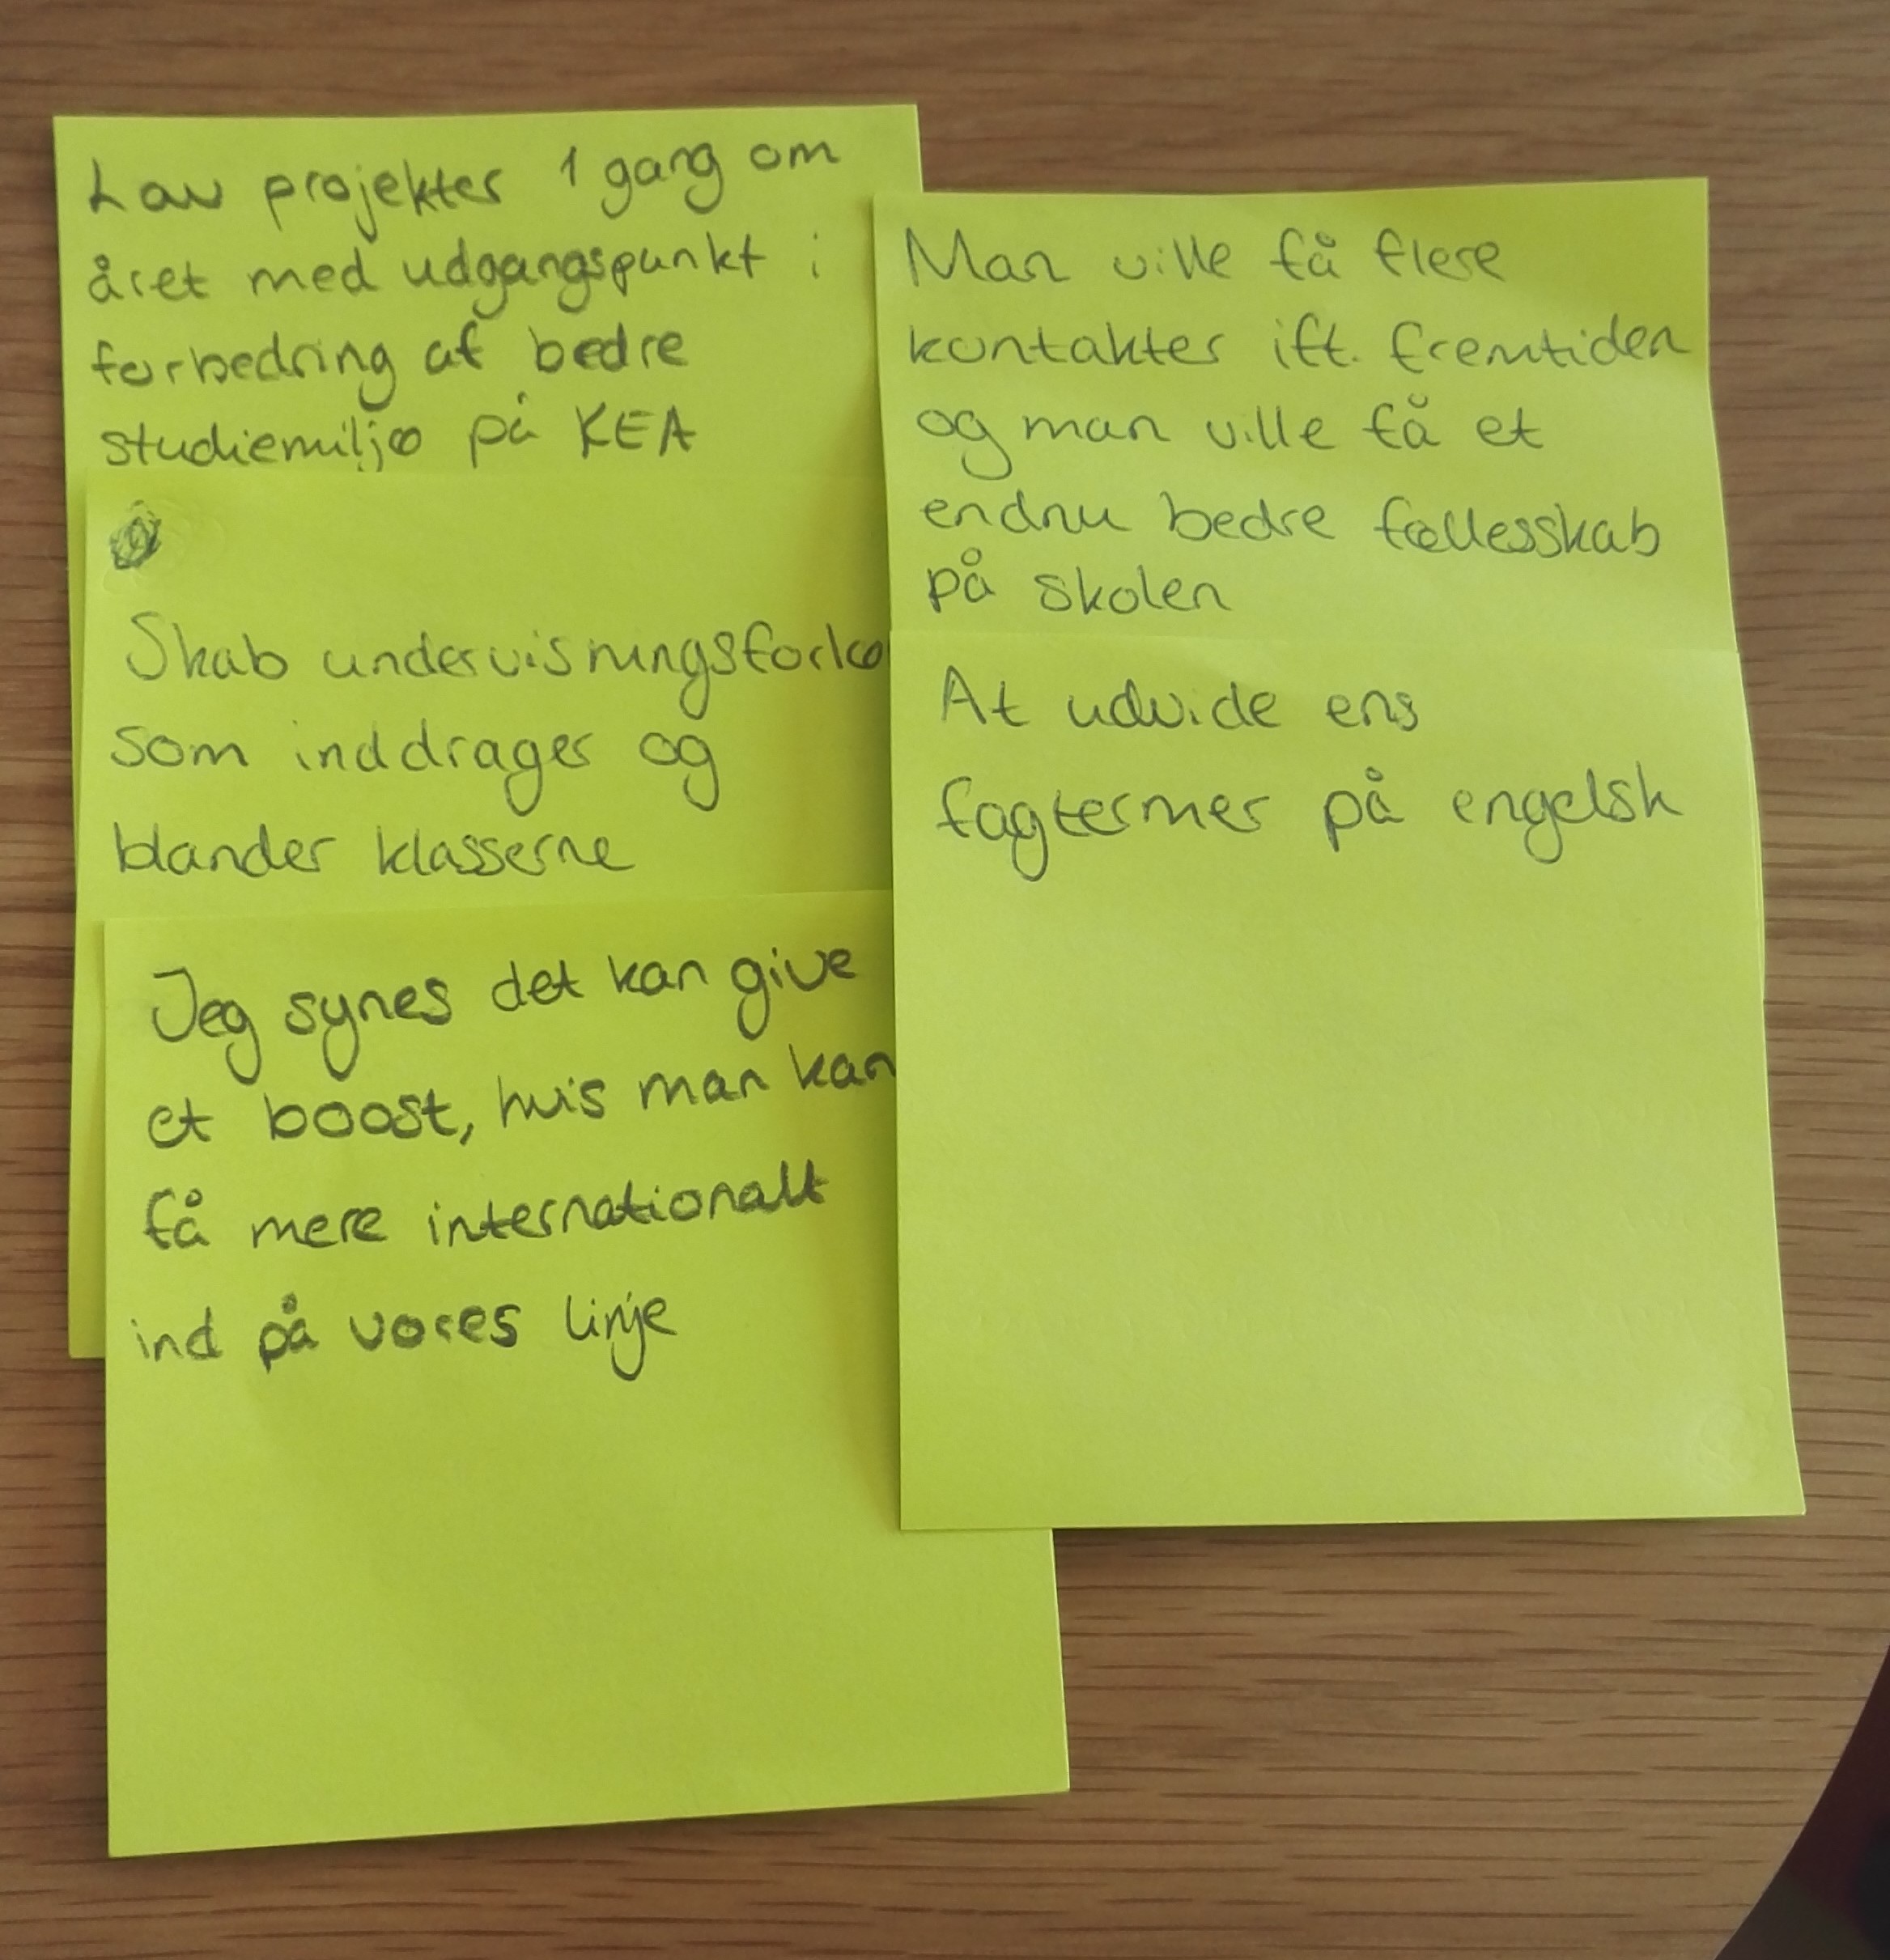 Lav projekter 1 gang om
året med udgangspunkt i
forbedring af bedre
studiemiljø på KEA
Skab
som inddrager og
blander klasserne
Jeg synes det kan give
et boost, hvis man kan
få mere internationalt
ind på vores linje
Man ville få flere
kontakter ift. fremtiden
og man ville få et
endnu bedre fællesskab
på skolen
At udvide ens
fagtermer på engelsk